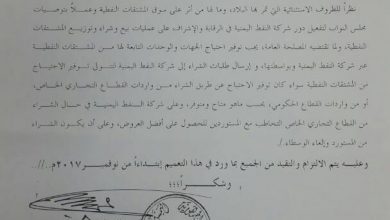 نظراً للظروف الاستثنائية التي تمر بها البلاد، وما لها من أثر على سوق المشتقات النفطية وعملاً بتوصيات
مجلس النواب لتفعيل دور شركة النفط اليمنية في الرقابة والإشراف، على عمليات بيع وشراء وتوزيع المشتقات
النفطية، ولما تقتضيه المصلحة العامة، يجب توفير احتياج الجهات والوحدات التابعة لها من المشتقات النفطية
عبر شركة النفط اليمنية وبواسطتها، وإرسال طلبات الشراء إلى شركة النفط اليمنية لتتولى توفير الاحتياج
من المشتقات النفطية سواء كان توفير الاحتياج عن طريق الشراء من واردات القطاع التجاري الخاص،
أو من واردات القطاع الحكومي، بحسب ماهو متاح ومتوفر، وعلى شركة النفط اليمنية في حال الشراء
من القطاع التجاري الخاص التخاطب مع المستوردين للحصول على أفضل العروض، وعلى أن يكون الشراء
من المورد وإلغاء الوسطاء.
وعليه يتم الالتزام والتقيد من الجميع بما ورد في هذا التعميم إبتداءاً من نوفمبر ٢٠١٧م.//.
وشكراً؛؛؛